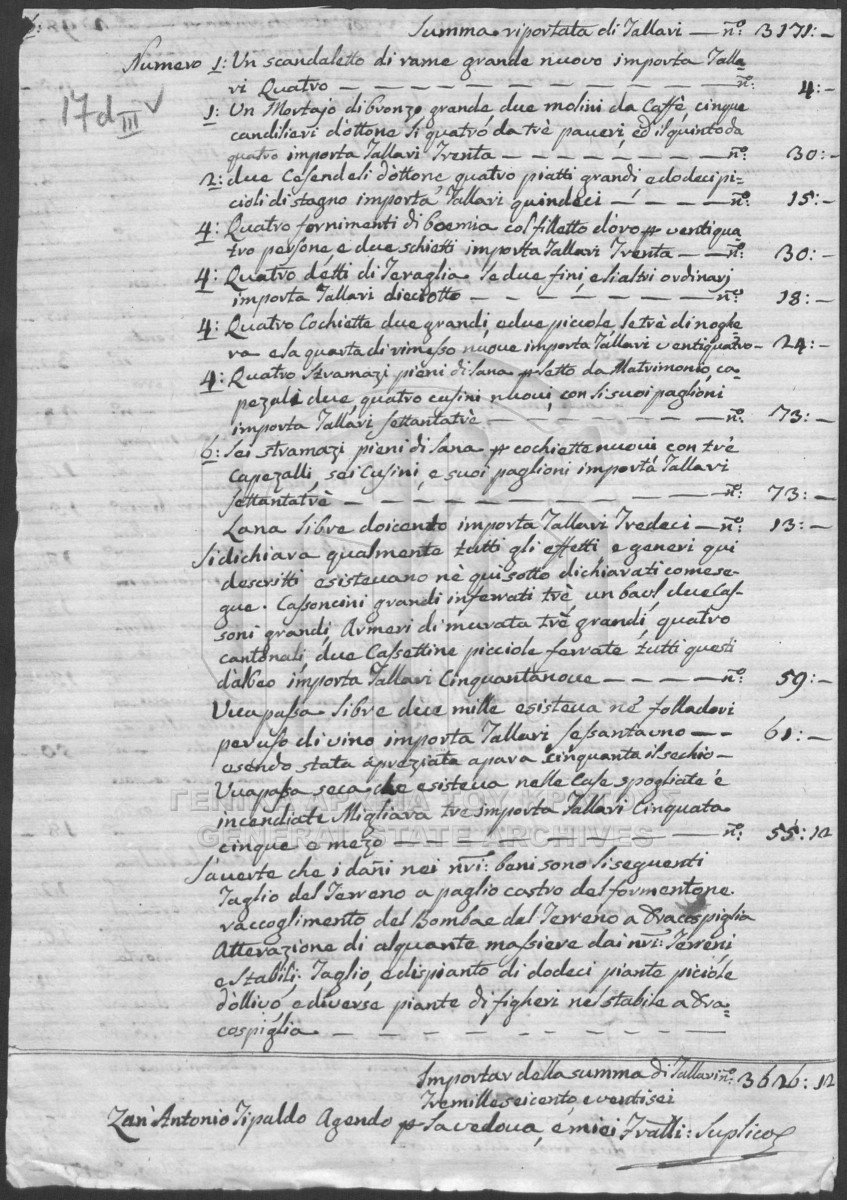 Summa riportata di Tallari — nº: 3171:–
Numero 1: Un scandaletto di rame grande nuovo importa Talla-
ri Quatro — nº: 4:–
17d III
1: Un Mortajo di bronzo grande due molini da Caffè, cinque
candilieri d'ottone li quatro da trè paueri, ed il quinto da
quatro importa Tallari Trenta — nº: 30:–
2: due Cesendeli d'ottone quatro piatti grandi, e dodeci pi-
cioli di stagno importa Tallari quindeci — nº: 15:–
4: Quatro fornimenti di boemia col filletto d'oro p ventiqua-
tro persone, e due schietti importta Tallari Trenta — nº: 30:–
4: Quatro detti di Teraglia le due fini, e li altri ordinarj
importa Tallari dieciotto — nº: 18:–
4: Quatro Cochiette due grandi, e due piccole, le trè di noghe-
ra e la quarta di rimesso nuove importa Tallari ventiquatro – 24:–
4: Quatro stramazi pieni di lana p letto da Matrimonio, ca-
pezali due, quatro cusini nuovi, con li suoi paglioni
importa Tallari settantatrè — nº: 73:–
6: Sei stramazi pieni di lana p cochiette nuovi con trè
Capezalli, sei Cusini, e suoi paglioni importa Tallari
settantatrè — nº: 73:–
Lana libre doicento importa Tallari Tredeci — nº: 13:–
Si dichiara qualmente tutti gli effetti e generi qui
descritti esistevano nè qui sotto dichiarati come se-
gue. Cassoncini grandi inferrati trè, un baul, due Cas-
soni grandi, Armeri di murata trè grandi, quatro
cantonali, due Cassettine picciole ferrate, tutti questi
d'albeo importa Tallari Cinquantanove — nº: 59:–
Uva passa libre due mille esisteva nè folladori
per uso di vino importa Tallari sessantauno — 61:–
esendo stata apreziata a para cinquanta il sechio –
Uva passa seca che esisteva nelle Case spogliate è
incendiate Migliara tre importa Tallari Cinquata
cinque e mezo — nº: 55:12
S'averte che i dañi nei nr̃i: beni sono li seguenti
Taglio del Terreno a paglio castro del formentone
raccoglimento del Bombae dal Terreno a Dracospiglia
Atterazione di alquante massiere dai nr̃i: Terreni
e stabili; Taglio, e dispianto di dodeci piante piciole
d'ollivo, e diverse piante di figheri nel stabile a Dra-
cospiglia —
ΓΕΝΙΚΑ ΑΡΧΕΙΑ ΤΟΥ ΚΡΑΤΟΥΣ
GENERAL STATE ARCHIVES
Importar della summa di Tallari nº: 3626:12
Tremilleseicento, e ventisei
Zan Antonio Tipaldo Agendo p la vedova, è miei Fratli: Suplico